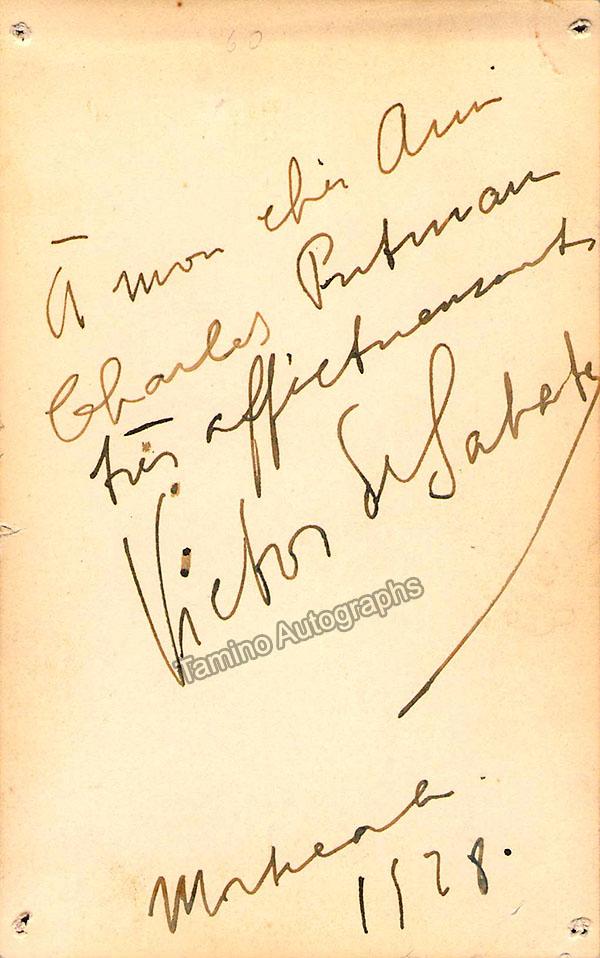 60
À mon cher Ami
Charles Putman
très affectueusement
Victor de Sabata
Tamino Autographs
1928.